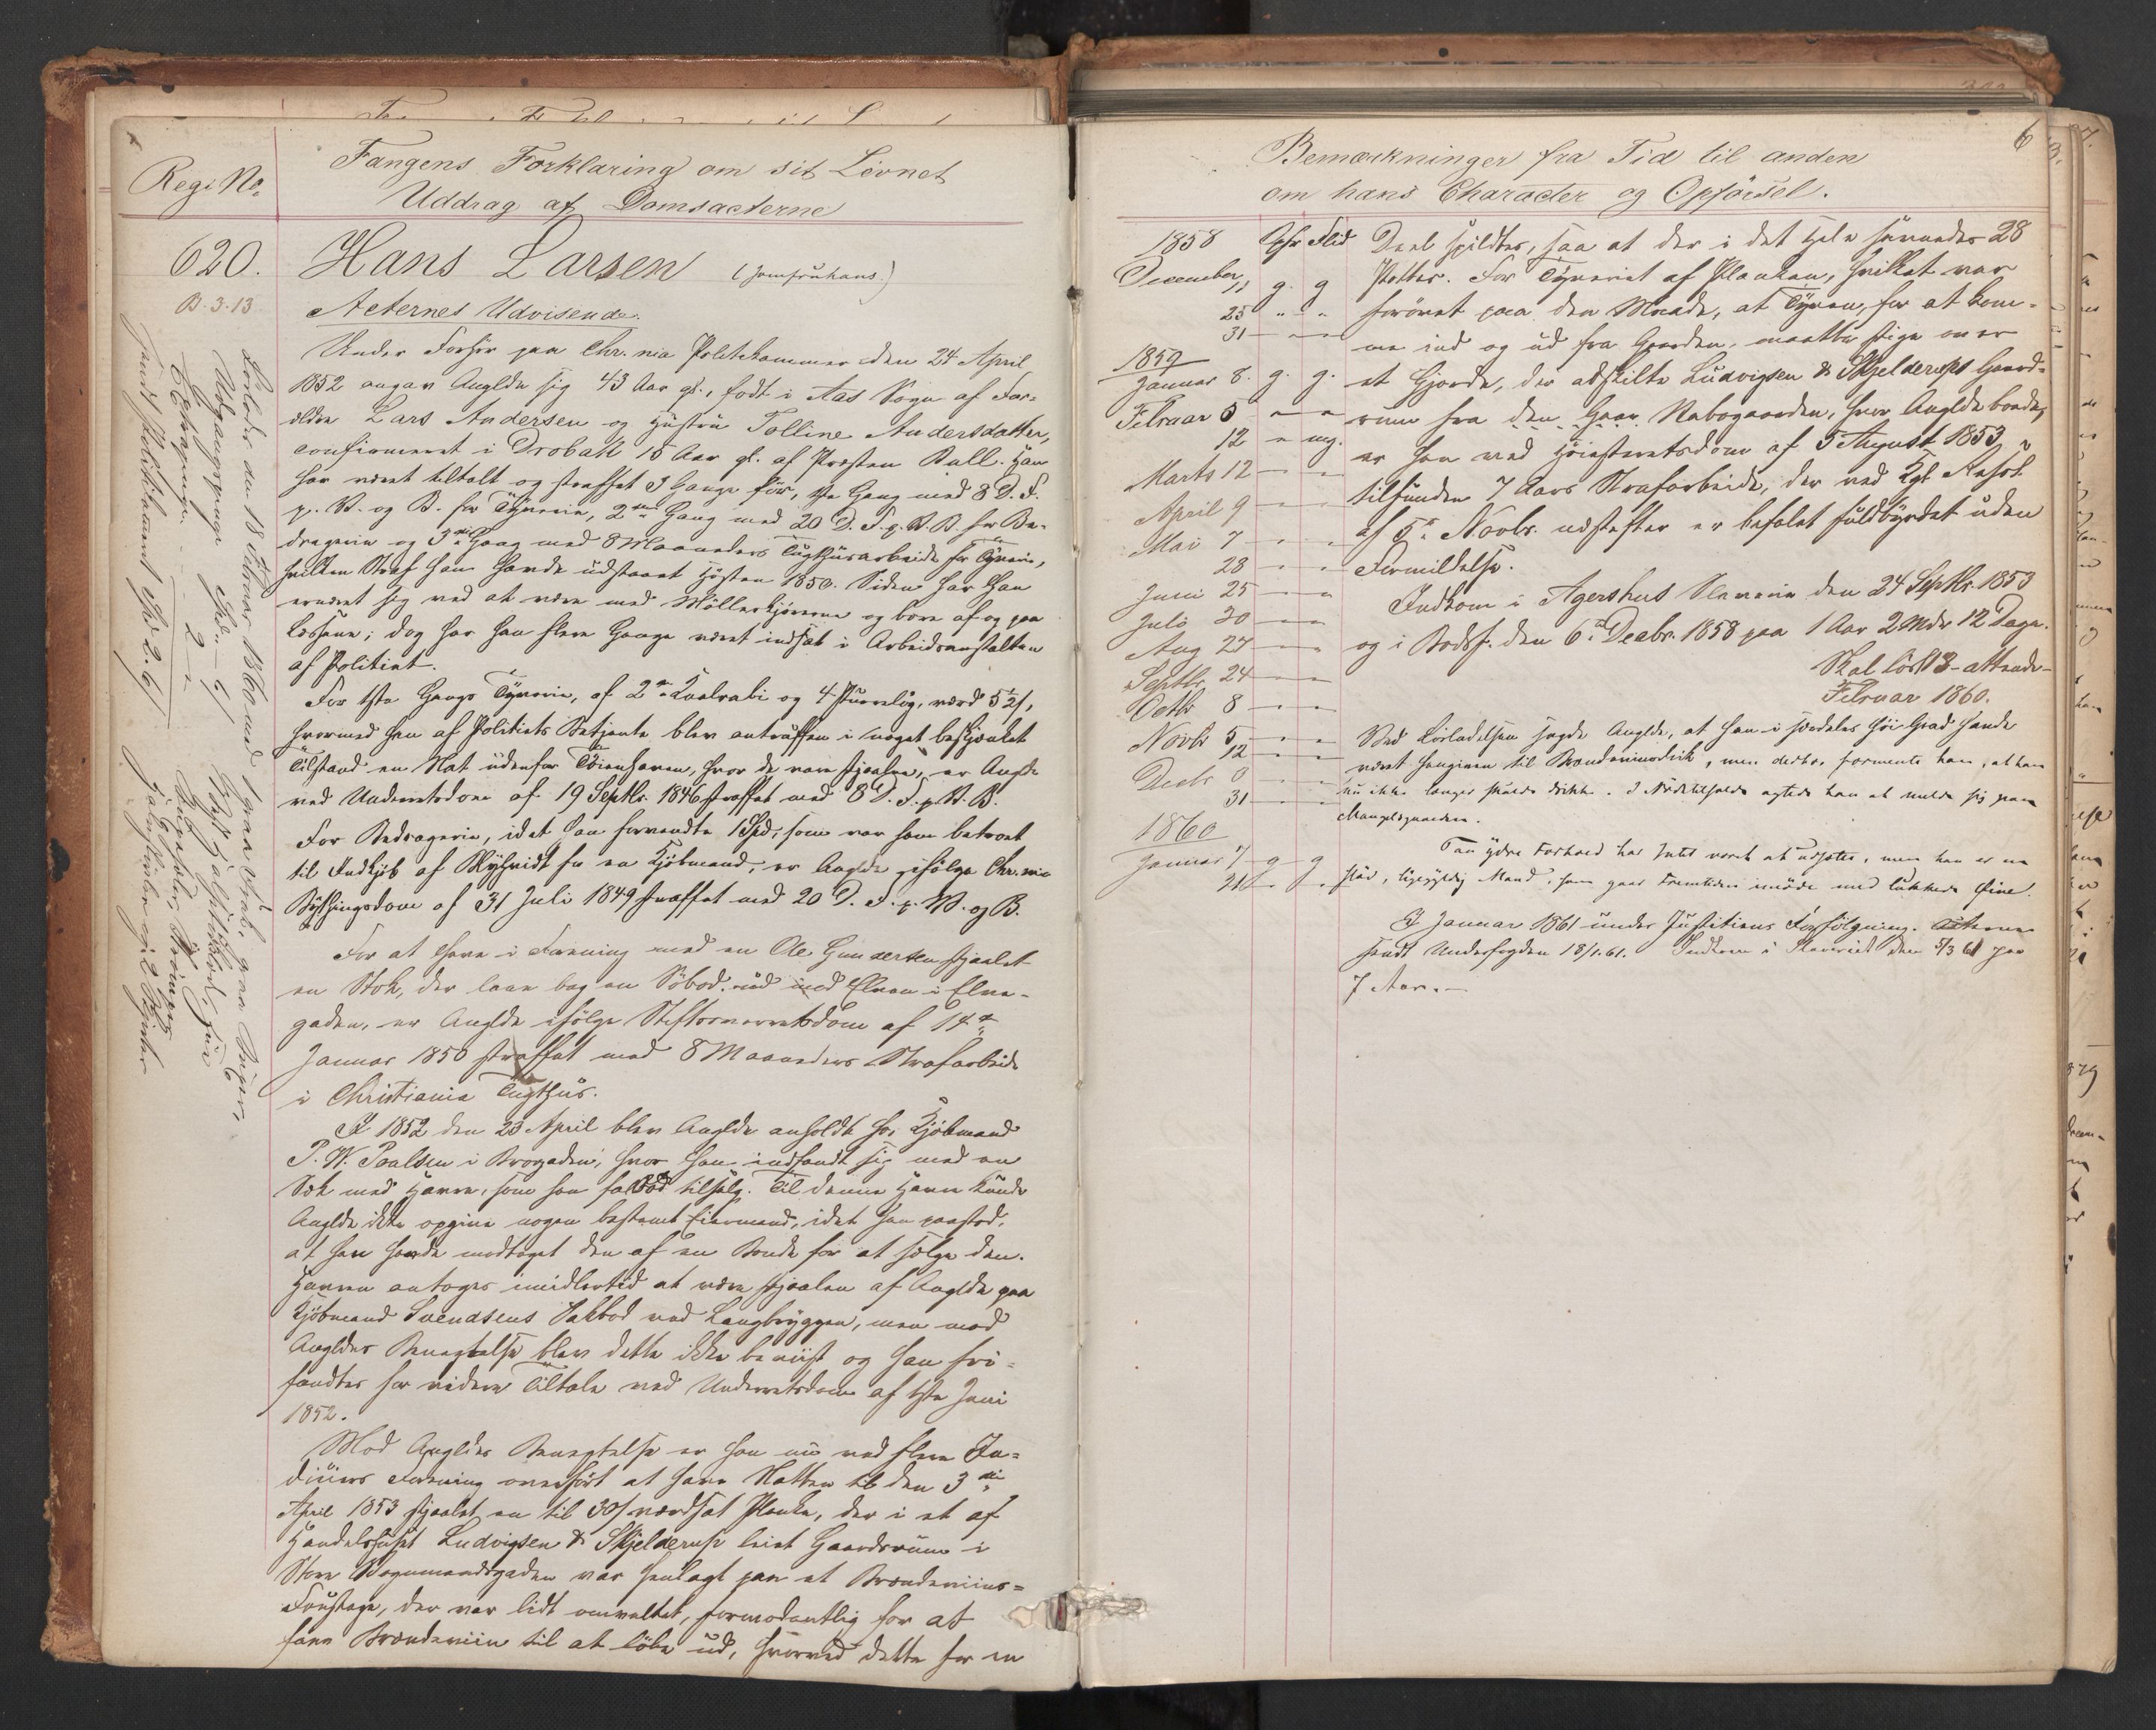 Regi No.
Fangens Forklaring om sit Levnet
Uddrag af Domsacterne
620.
B. 3. 13
Hans Larsen (Jomfruhans)
Acternes Udvisende.
Under Forhør paa Chr.nia Politikammer den 24 April
1852 angav Anglde sig 43 Aar gl., født i Aas Sogn af For-
ældre Lars Andersen og Hustru Tolline Andersdatter,
confirmeret i Drøbak 15 Aar gl. af Præsten Bull. Han
har været tiltalt og straffet 3 Gange før, 1ste Gang med 8 D. F.
p. V. og B. for Tyverie, 2den Gang med 20 D. F. p. V. B. for Be-
dragerie og 3die Gang med 8 Maaneders Tugthusarbeide for Tyverie,
hvilken Straf han havde udstaaet Høsten 1850. Siden har han
ernæret sig ved at være med Møllerkjørerne og bære af og paa
Læssene; dog har han flere Gange været indsat i Arbeidsanstalten
af Politiet.
For 1ste Gangs Tyverie, af 2de Kaalrabi og 4 Purreløg, værd 5½ s,
hvormed han af Politiets Betjente blev antruffen i noget beskjænket
Tilstand en Nat udenfor Tøienhaven, hvor de vare stjaalne, er Anglde
ved Underretsdom af 19 Septbr. 1846 straffet med 8 D. F. p. V. B.
For Bedragerie, idet han forvendte 1 Spd., som var ham betroet
til Indkjøb af for en Kjøbmand, er Anglde ifølge Chr.nia
Bythingsdom af 31 Juli 1849 straffet med 20 D. F. p. V. og B.
For at have i Forening med en Ole Gundersen stjaalet
en Stok, der laae bag en Søbod ud med Elven i Elve-
gaden, er Anglde ifølge Stiftsoverretsdom af 14de
Januar 1850 straffet med 8 Maaneders Strafarbeide
i Christiania Tugthus.
I 1852 den 23 April blev Anglde anholdt hos Kjøbmand
P. W. Poalsen i Brogaden, hvor han indfandt sig med en
Sæk med Havre, som han falbød tilsalg. Til denne Havre kunde
Anglde ikke opgive nogen bestemt Eiermand, idet han paastod,
at han havde modtaget den af en Bonde for at sælge den.
Havren antoges imidlertid at være stjaalen af Anglde paa
Kjøbmand Svendsens Pakbod ved Langbryggen, men mod
Angldes Benægtelse blev dette ikke beviist og han fri-
fandtes for videre Tiltale ved Underretsdom af 1ste Juni
1852.
Mod Angldes Benægtelse er han nu ved flere In-
diciers Forening overført at have Natten til den 3die
April 1853 stjaalet en til 30 s værdsat Planke, der i et af
Handelshuset Ludvigsen & Skjelderup leiet Gaardsrum i
Store Vognmandsgaden var henlagt paa et Brændeviins-
Foustage, der var lidt omveltet, formodentlig for at
faae Brændeviin til at løbe ud, hvorved dette for en
Løslades den 18 Februar 1860 med 1 graa Frak, graa Buxer,
Udgangspenge
Bemærkninger fra Tid til anden
om hans Character og Opførsel.
6
1858 Opfr. Flid
December 11 g. g
25 " "
31 - -
1859
Januar 8. g. g.
Februar 5 - -
12 - mg.
Marts 12 - -
April 9 - -
Mai 7 - -
28 - -
Juni 25 - -
Juli 30 - -
Aug 27 - -
Septbr. 24 - -
Octbr 8 - -
Novbr 5 - -
12 - -
Decbr 3 - -
31 - -
1860
Januar 7 g - g
21 - -
Deel spildtes, saa at der i det Hele savnedes 28
Potter. For Tyveriet af Planken, hvilket var
forøvet paa den Maade, at Tyven, for at kom-
me ind og ud fra Gaarden, maatte stige over
et Gjerde, der adskilte Ludvigsen & Skjelderups Gaards-
rum fra den Gaar Nabogaarden, hvor Anglde boede,
er han ved Høiesteretsdom af 5 August 1853
tilfunden 7 Aars Strafarbeide, der ved Kgl. Resol.
af 5te Novbr. næstefter er befalet fuldbyrdet uden
Formildelse.
Indkom i Agershus Slaverie den 24 Septbr. 1853
og i Bodsf. den 6te Decbr. 1858 paa 1 Aar 2 Mdr 12 Dage.
Skal løsl. 18 - attende -
Februar 1860.
Ved Løsladelsen sagde Anglde, at han i særdeles høi Grad havde
været hengiven til Brændeviinsdrik, men derhos formente han, at han
nu ikke længer skulde drikke. I Nødstilfælde agtede han at melde sig paa
Mangelsgaarden.
Paa ydre Forhold har Intet været at udsætte, men han er en
sløv, ligegyldig Mand, som gaar Fremtiden imøde med lukkede Øine.
I Januar 1861 under Justitiens Forfølgning. Acterne
sendt Underfogden 18/1. 61. Indkom i Slaveriet den 5/3 61 paa
7 Aar. -